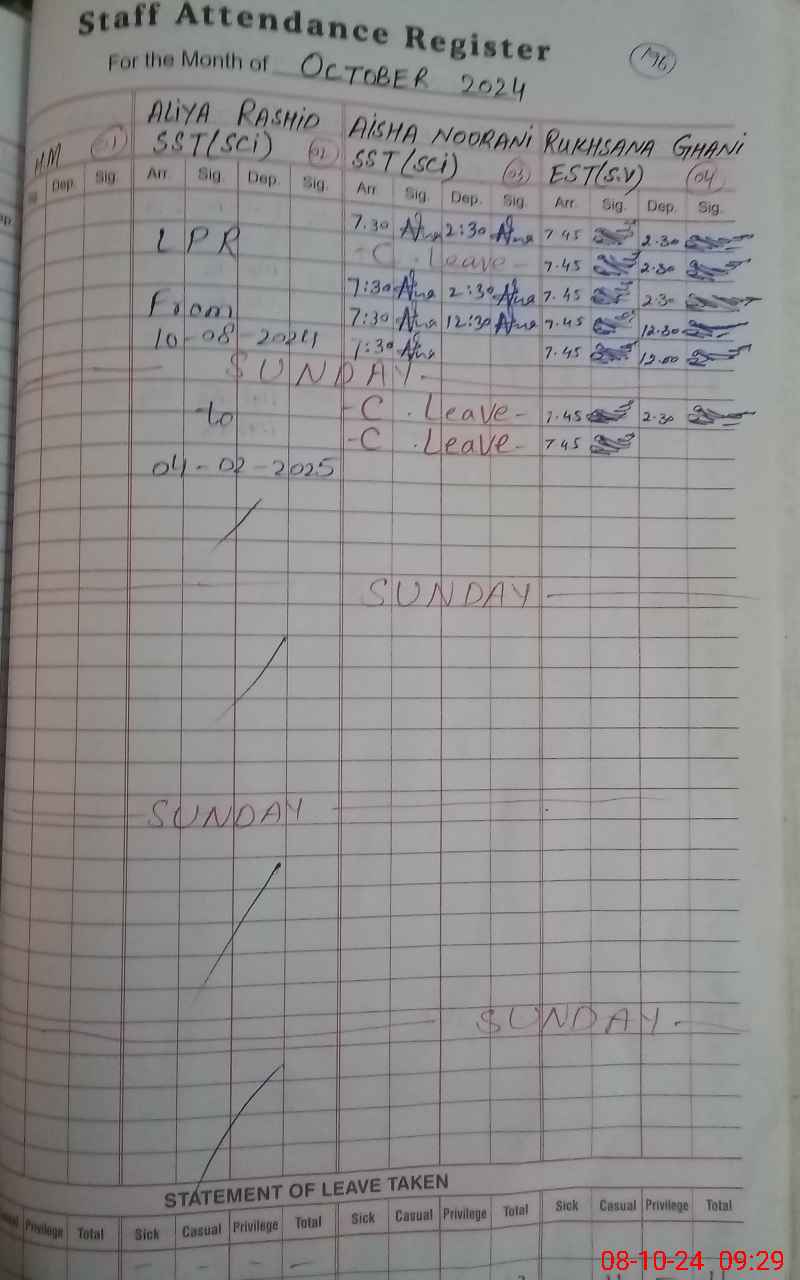 Staff Attendance Register
For the Month of OCTOBER 2024
196
HM 01 ALIYA RASHID AISHA NOORANI RUKHSANA GHANI
SST(SCi) 02 SST(SCi) 03 EST(S.V) 04
Dep. Sig. Arr. Sig. Dep. Sig. Arr. Sig. Dep. Sig. Arr. Sig. Dep. Sig.
7.30 2:30 7.45 2.30
LPR - C. Leave - 7.45 2.30
7:30 2:30 7.45 2.30
From 7:30 12:30 7.45 12.30
10-08-2024 7:30 7.45 12.00
SUNDAY.
to - C. Leave - 7.45 2.30
- C. Leave - 7.45
04-02-2025
SUNDAY
SUNDAY
SUNDAY.
STATEMENT OF LEAVE TAKEN
Privilege Total Sick Casual Privilege Total Sick Casual Privilege Total Sick Casual Privilege Total
08-10-24 09:29